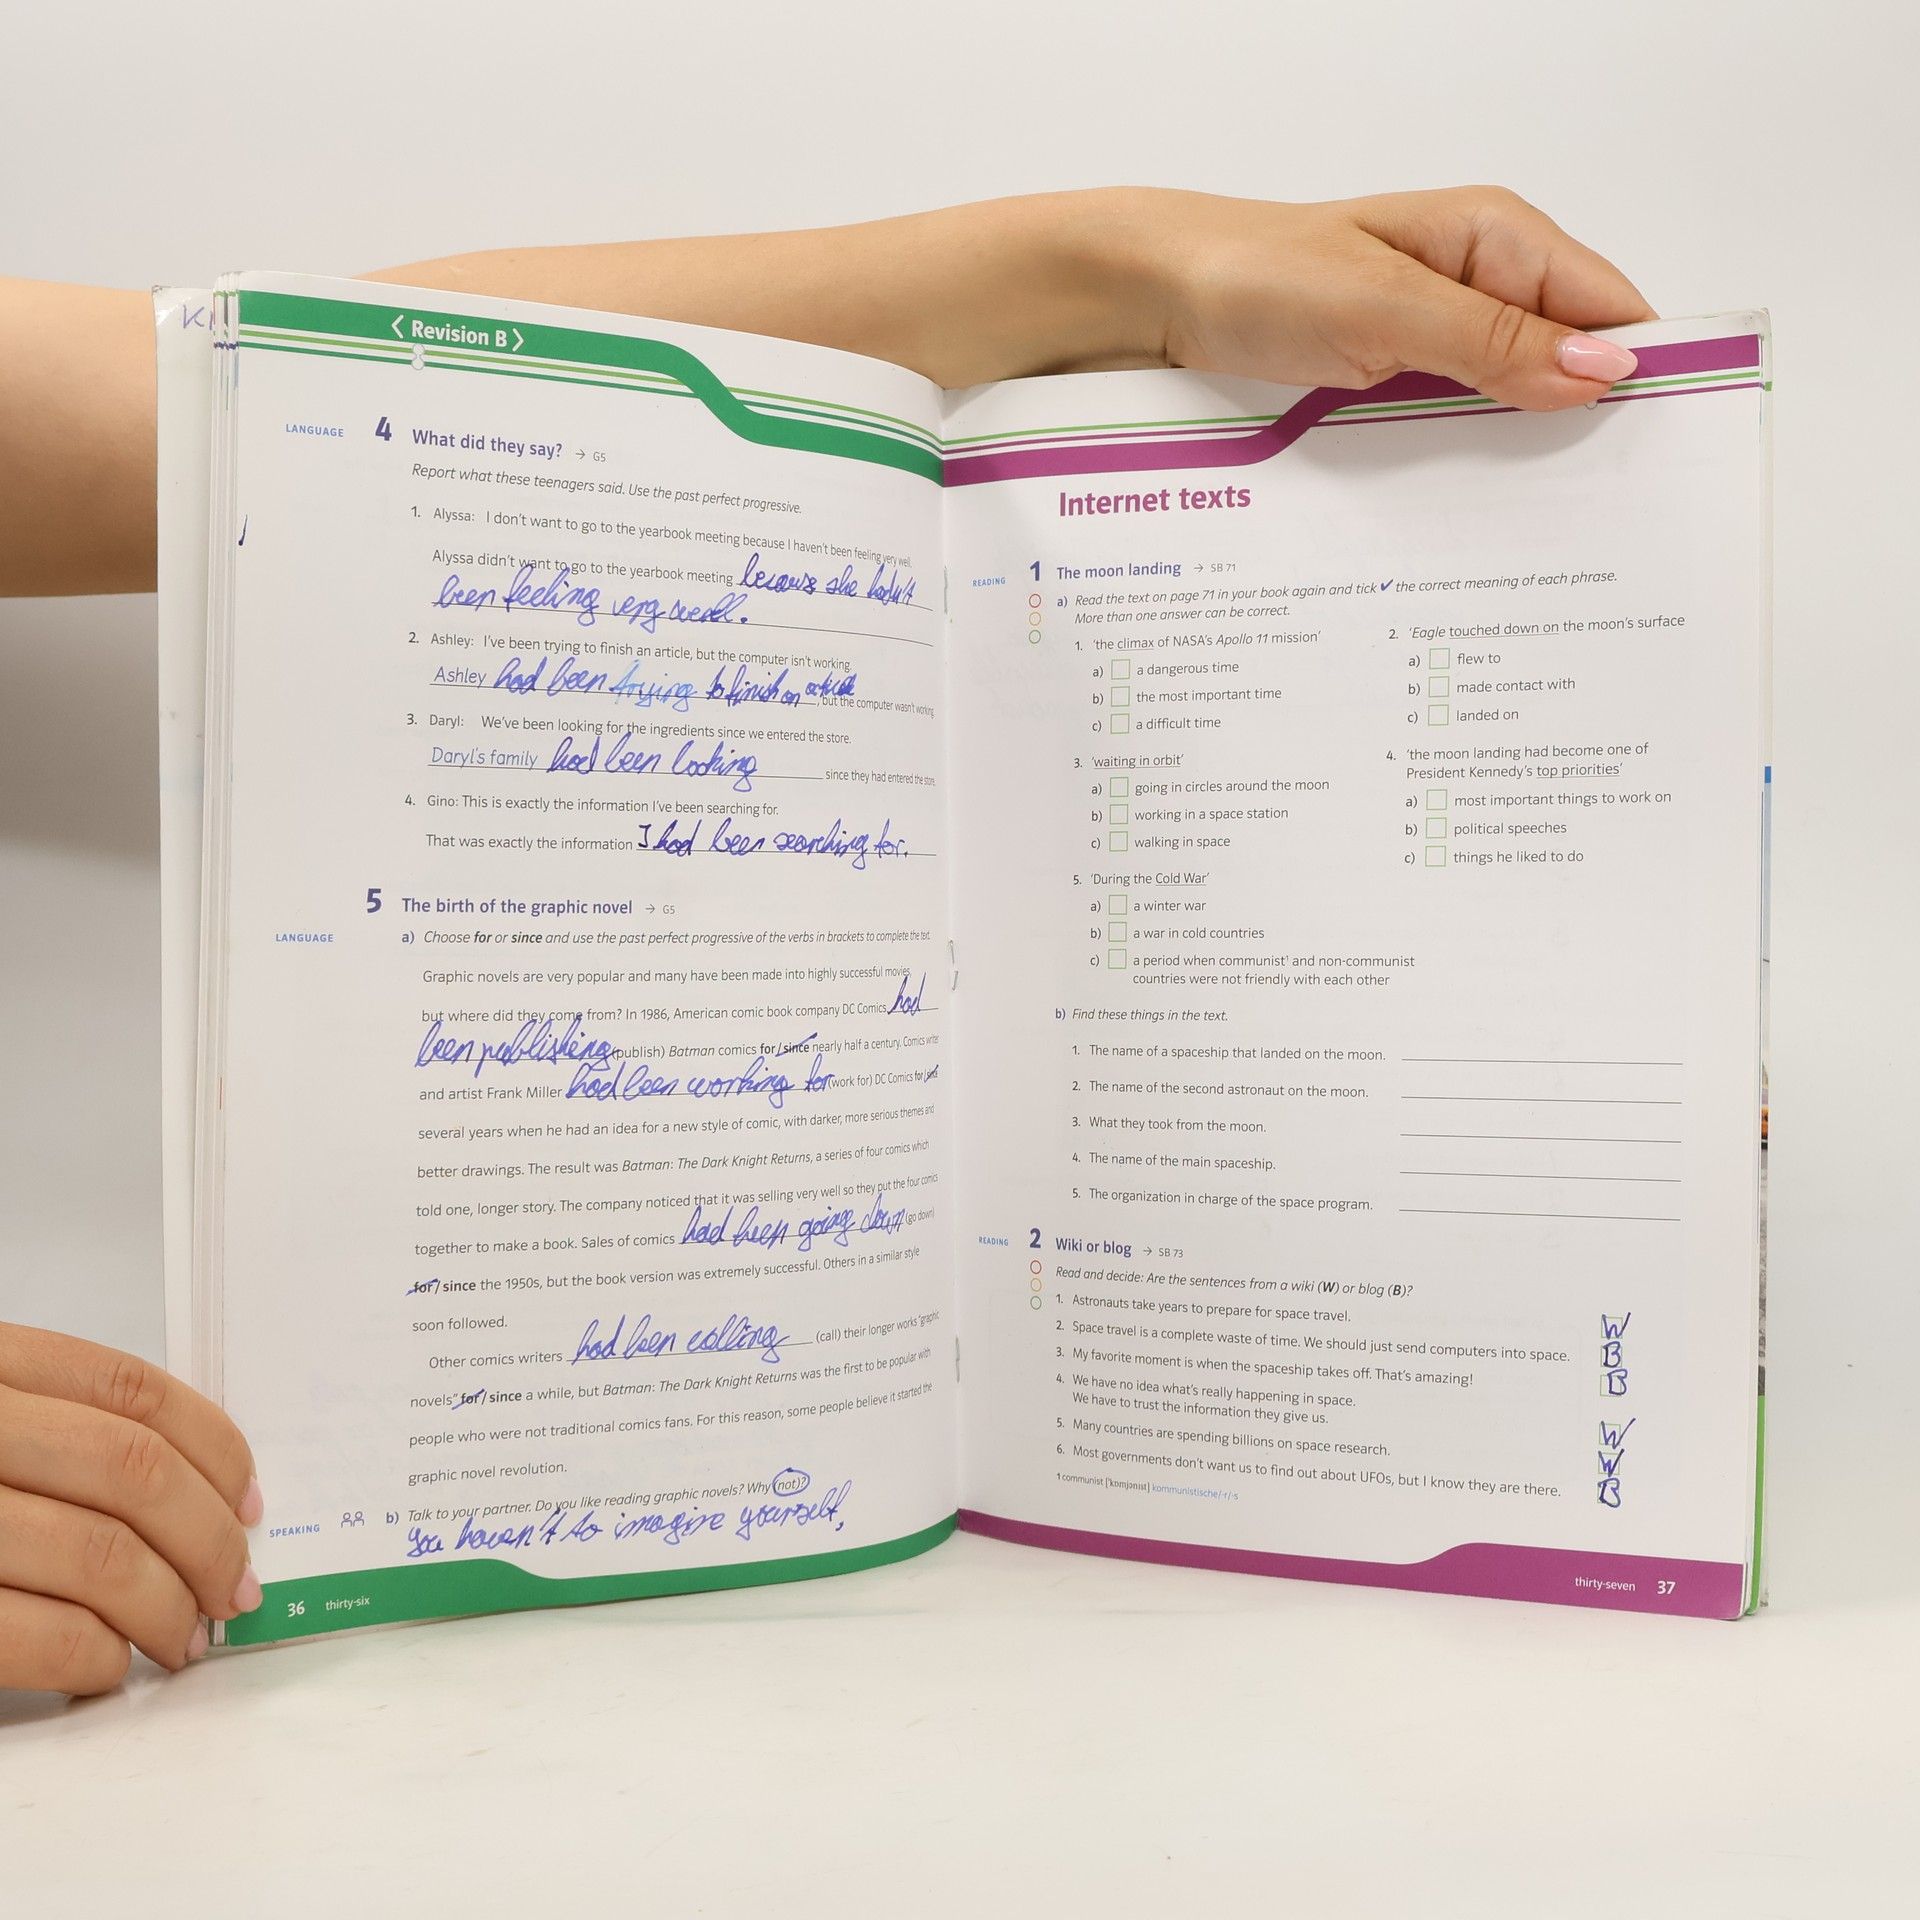 KI
< Revision B >
LANGUAGE 4 What did they say? → G5
Report what these teenagers said. Use the past perfect progressive.
1. Alyssa: I don't want to go to the yearbook meeting because I haven't been feeling very well.
Alyssa didn't want to go to the yearbook meeting because she hadn't
been feeling very well.
2. Ashley: I've been trying to finish an article, but the computer isn't working.
Ashley had been trying to finish an article, but the computer wasn't working.
3. Daryl: We've been looking for the ingredients since we entered the store.
Daryl's family had been looking since they had entered the store.
4. Gino: This is exactly the information I've been searching for.
That was exactly the information I had been searching for.
LANGUAGE 5 The birth of the graphic novel → G5
a) Choose for or since and use the past perfect progressive of the verbs in brackets to complete the text.
Graphic novels are very popular and many have been made into highly successful movies,
but where did they come from? In 1986, American comic book company DC Comics had
been publishing (publish) Batman comics for / since nearly half a century. Comics writer
and artist Frank Miller had been working for (work for) DC Comics for / since
several years when he had an idea for a new style of comic, with darker, more serious themes and
better drawings. The result was Batman: The Dark Knight Returns, a series of four comics which
told one, longer story. The company noticed that it was selling very well so they put the four comics
together to make a book. Sales of comics had been going down (go down)
for / since the 1950s, but the book version was extremely successful. Others in a similar style
soon followed.
Other comics writers had been calling (call) their longer works "graphic
novels" for / since a while, but Batman: The Dark Knight Returns was the first to be popular with
people who were not traditional comics fans. For this reason, some people believe it started the
graphic novel revolution.
SPEAKING b) Talk to your partner. Do you like reading graphic novels? Why (not)?
You haven't to imagine yourself,
36 thirty-six
Internet texts
READING 1 The moon landing → SB 71
a) Read the text on page 71 in your book again and tick ✔ the correct meaning of each phrase.
More than one answer can be correct.
1. 'the climax of NASA's Apollo 11 mission'
a) a dangerous time
b) the most important time
c) a difficult time
2. 'Eagle touched down on the moon's surface
a) flew to
b) made contact with
c) landed on
3. 'waiting in orbit'
a) going in circles around the moon
b) working in a space station
c) walking in space
4. 'the moon landing had become one of
President Kennedy's top priorities'
a) most important things to work on
b) political speeches
c) things he liked to do
5. 'During the Cold War'
a) a winter war
b) a war in cold countries
c) a period when communist¹ and non-communist
countries were not friendly with each other
b) Find these things in the text.
1. The name of a spaceship that landed on the moon.
2. The name of the second astronaut on the moon.
3. What they took from the moon.
4. The name of the main spaceship.
5. The organization in charge of the space program.
READING 2 Wiki or blog → SB 73
Read and decide: Are the sentences from a wiki (W) or blog (B)?
1. Astronauts take years to prepare for space travel. W
2. Space travel is a complete waste of time. We should just send computers into space. B
3. My favorite moment is when the spaceship takes off. That's amazing! B
4. We have no idea what's really happening in space.
We have to trust the information they give us. W
5. Many countries are spending billions on space research. W
6. Most governments don't want us to find out about UFOs, but I know they are there. B
1 communist ['kɒmjənɪst] kommunistische/-r/-s
thirty-seven 37